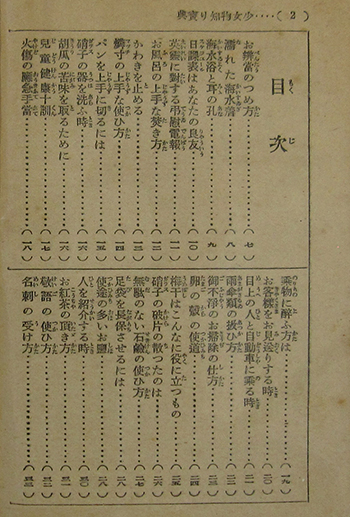 ( 2 )・・・・・少女物知り寶典
目次
お辨當のつめ方………(七)
濡れた海水着………(八)
海水浴と耳の孔………(九)
日課表はあなたの良友………(一〇)
英靈に對する弔慰電報………(一一)
お風呂の上手な焚き方………(一二)
かわきを止める………(一三)
燐寸の上手な使ひ方………(一四)
パンを上手に切るには………(一五)
硝子の器を洗ふ時………(一六)
胡瓜の苦味を取るために………(一六)
兒童健康十則………(一七)
火傷の應急手當………(一八)
乘物に醉ふ方は………(一九)
お客樣をお見送りする時………(二〇)
目上の人と自動車に乘る時………(二一)
雨傘類の扱ひ方………(二二)
御不淨のお掃除の仕方………(二三)
卵の殼の使道………(二四)
梅干はこんなに役に立つもの………(二五)
硝子の破片の散つたのは………(二六)
無駄のない石鹸の使ひ方………(二七)
足袋を長保させるには………(二八)
使途の多いお鹽………(二八)
人を紹介する時………(三〇)
お紅茶の頂き方………(三一)
敬語の使ひ方………(三二)
名刺の受け方………(三三)